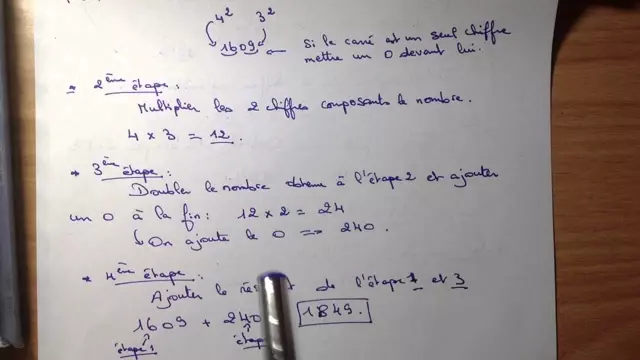 4² 3²
1609 Si le carré est un seul chiffre
mettre un 0 devant lui.
* 2ème étape :
Multiplier les 2 chiffres composants le nombre.
4 × 3 = 12.
* 3ème étape :
Doubler le nombre obtenu à l'étape 2 et ajouter
un 0 à la fin : 12 × 2 = 24
↳ On ajoute le 0 => 240.
* 4ème étape :
Ajouter le de l'étape 1 et 3
1609 + 240 1849.
étape 1